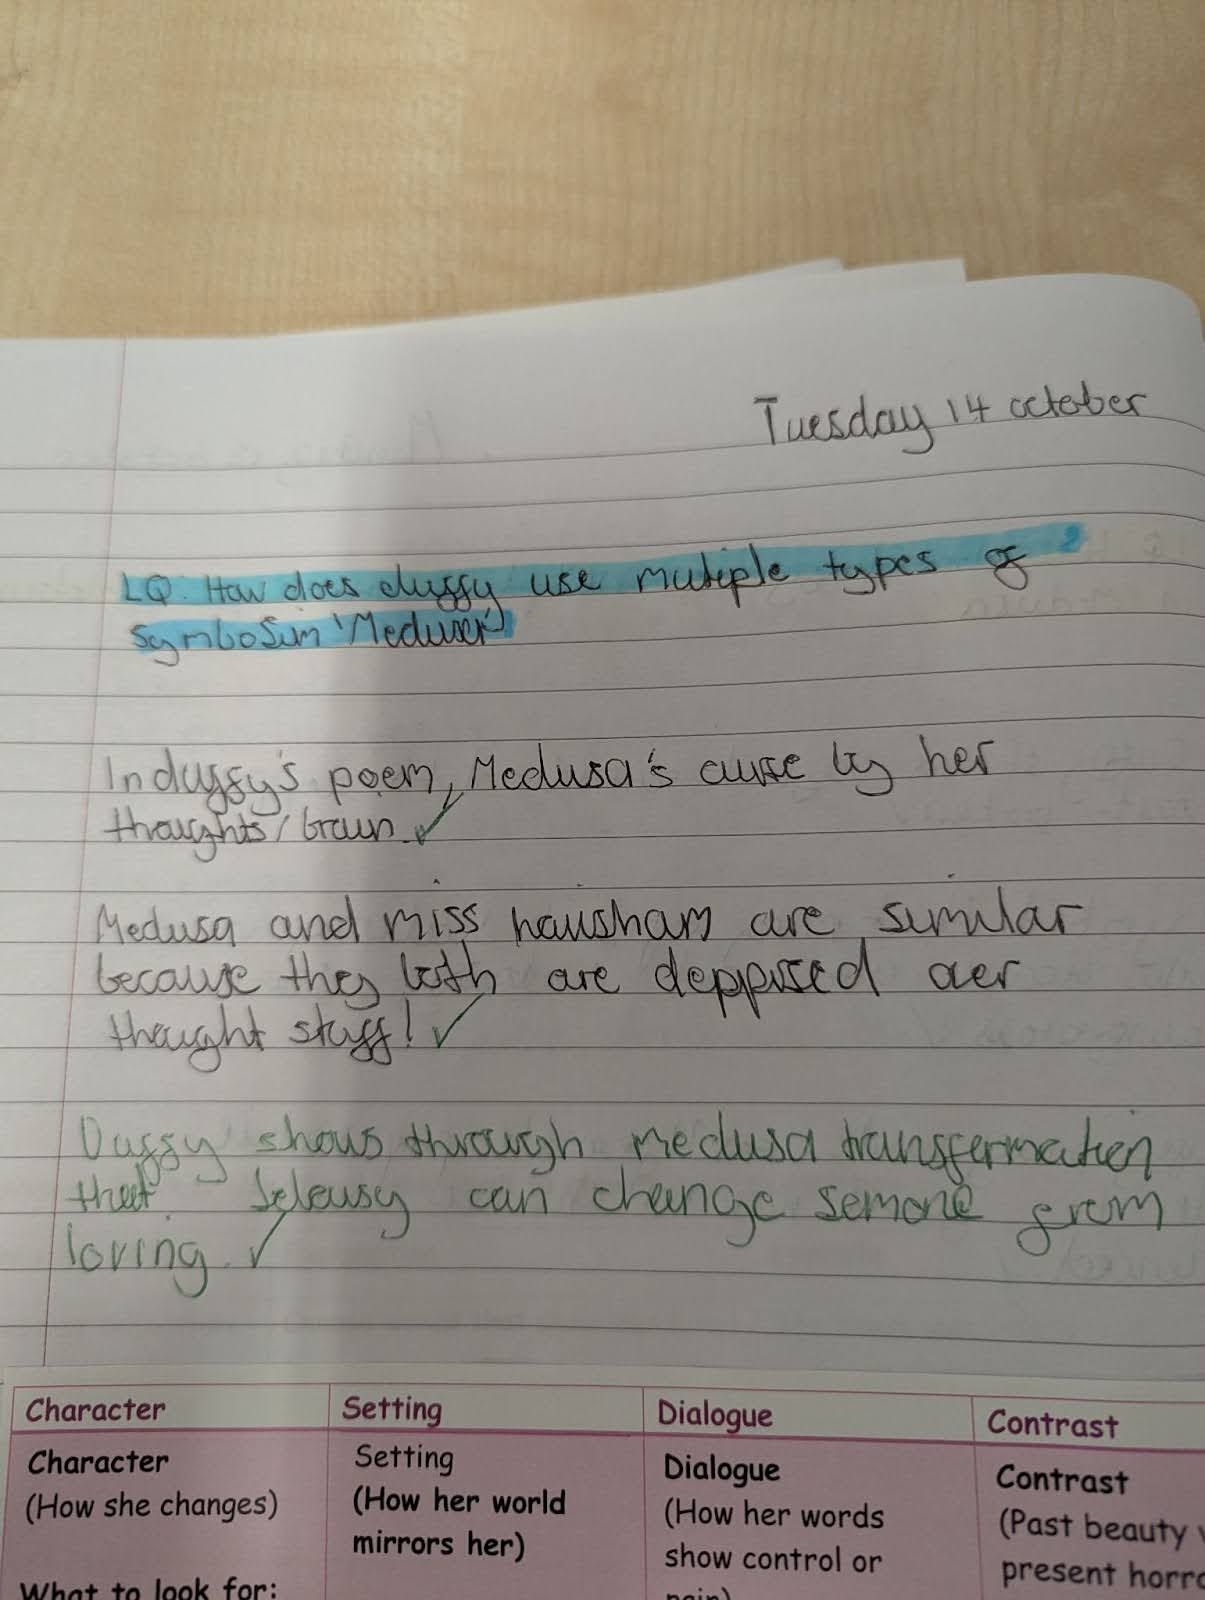 Tuesday 14 october
LQ: How does duffy use multiple types of
symbolism 'Medusa'?
In duffy's poem, Medusa's curse by her
thoughts / brain
Medusa and miss havisham are similar
because they both are deppresed over
thought stuff!
Duffy shows through medusa transformation
that Jelousy can change semone from
loving
Character
Setting
Dialogue
Contrast
Character
(How she changes)
What to look for:
Setting
(How her world
mirrors her)
Dialogue
(How her words
show control or
pain)
Contrast
(Past beauty v
present horro